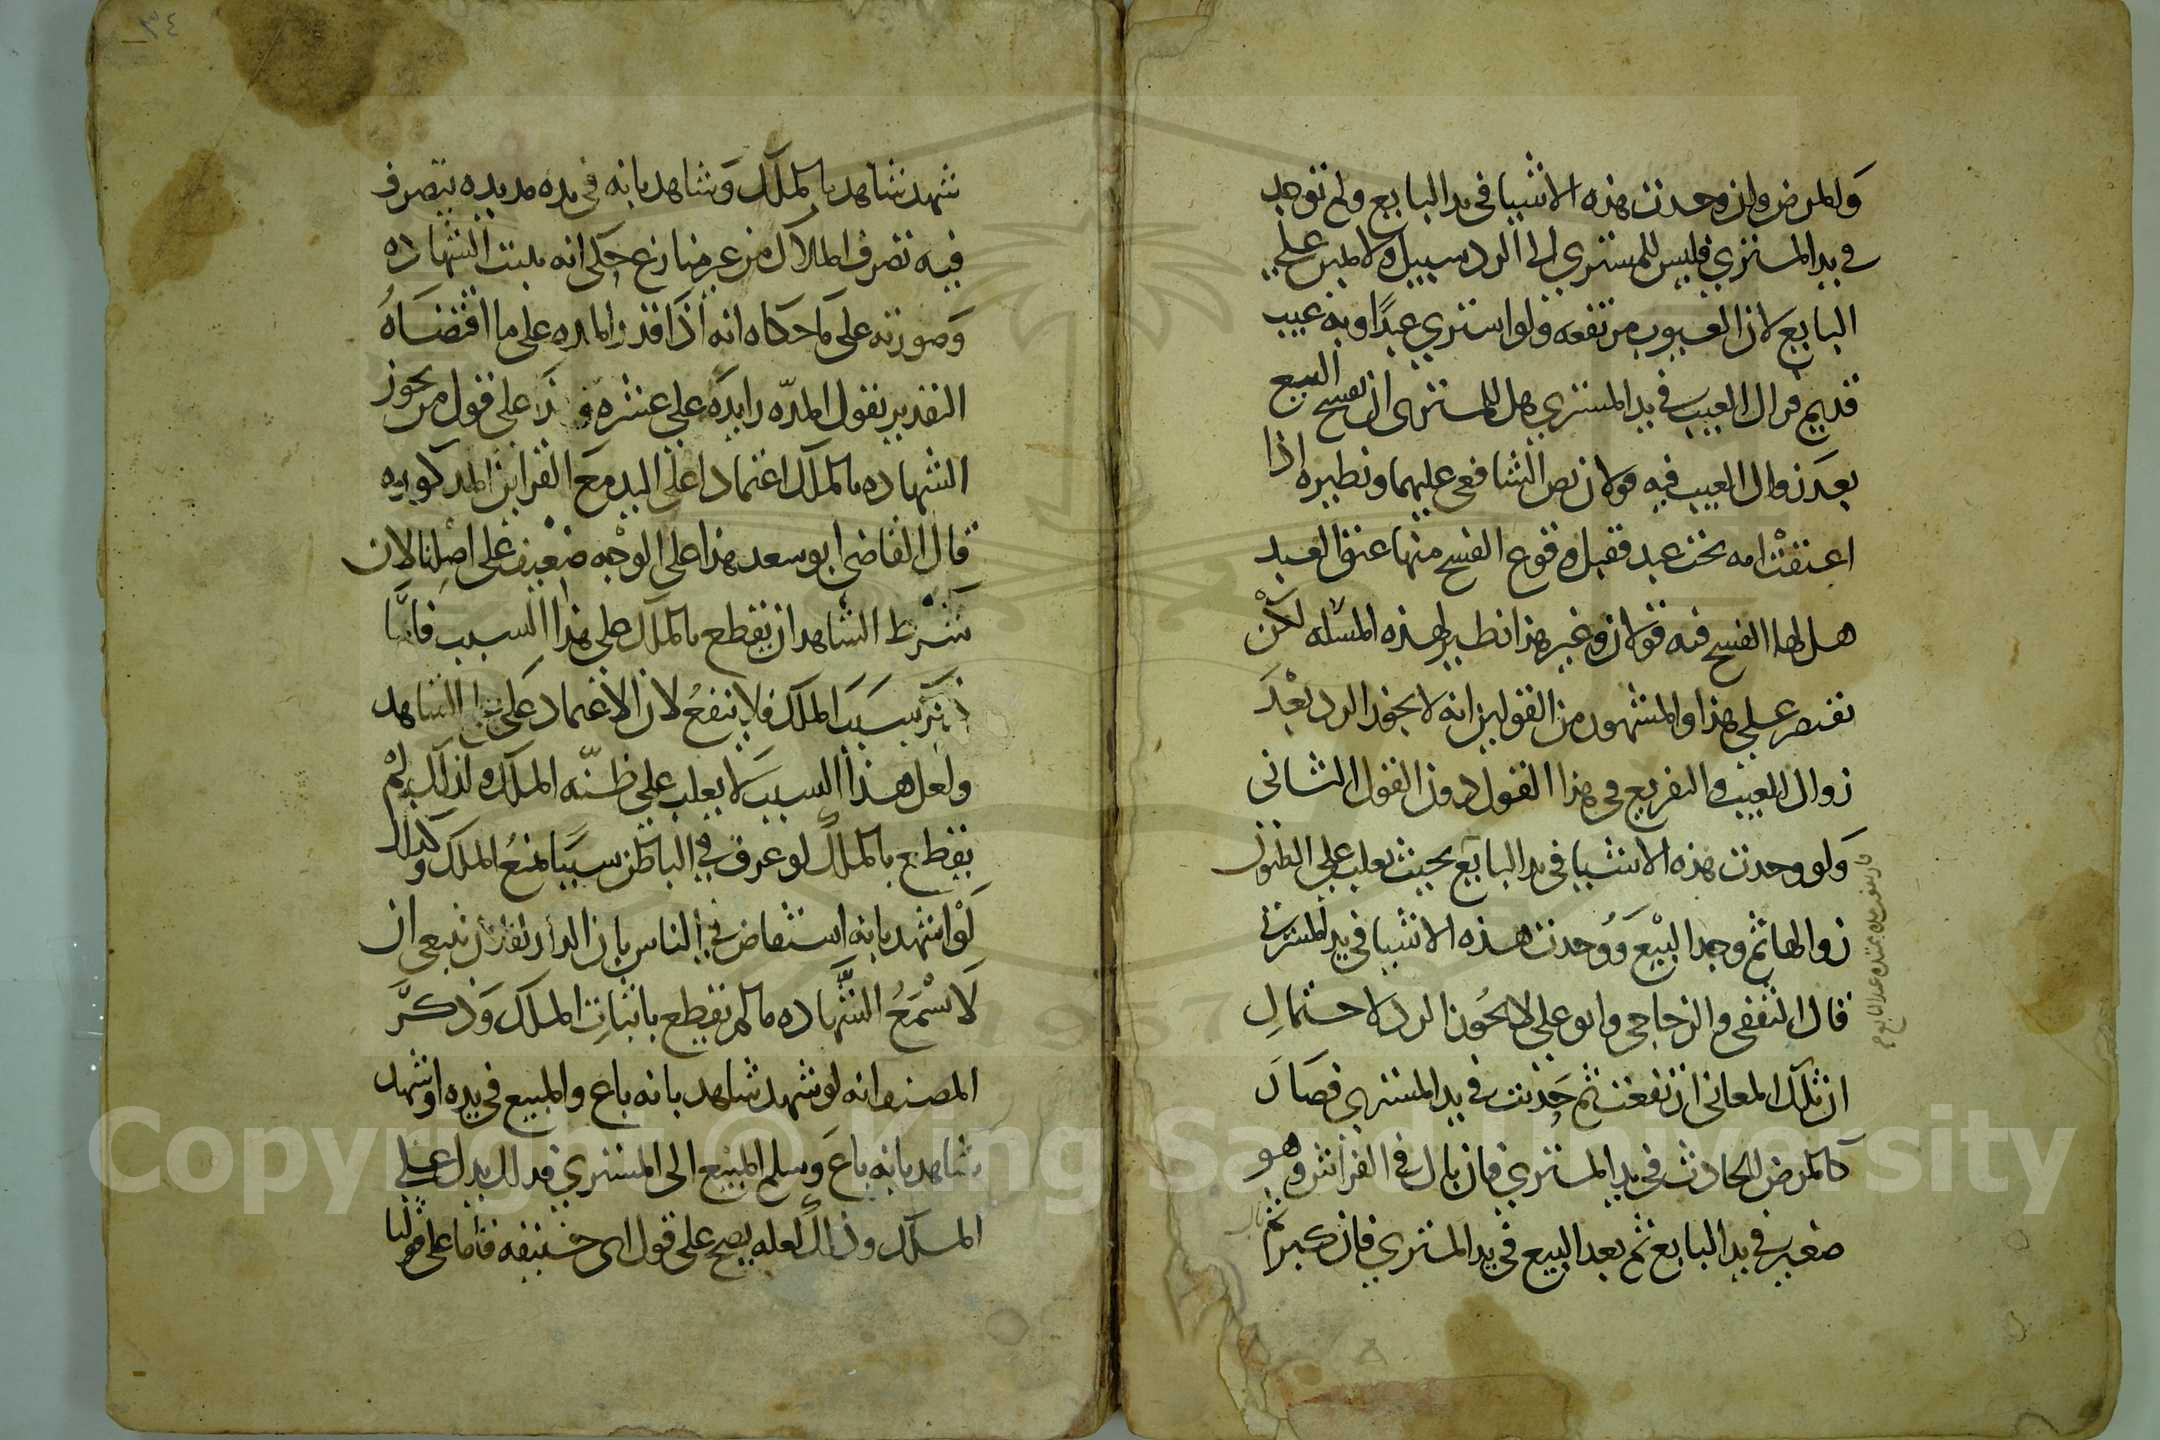 والمرض وان وحدت هذه الاشيا في يد البايع ولم توجد
في يد المشتري فليس للمشتري الى الرد سبيل ولا طرس على
البايع لان العيوب مرتفعه ولو اشتري عبدًا وبه عيب
قديم فزال العيب في يد المشتري هل للمشترى ان يفسخ البيع
بعد زوال العيب فيه قولان نص الشافعي عليهما ونظيره اذا
اعتقت امه تحت عبد فقبل وقوع الفسخ منها عتق العبد
هل لها الفسخ فيه قولان وغير هذا نظير لهذه المسله لكن
نقتصر على هذا والمشهور من القولين انه لا يجوز الرد بعد
زوال العيب والتفريع في هذا القول دون القول الثانى
ولو وجدت هذه الاشيا في يد البايع بحيث يغلب على الظنون
زوالها ثم وجد البيع ووجدت هذه الاشيا في يد المشترى
قال الثقفى والزجاجى وابو علي لا يجوز الرد لاحتمال
ان تلك المعانى ارتفعت ثم حدثت في يد المشترى فصار
كالمرض الحادث في يد المشتري فان بال في الفراش وهو
صغير في يد البايع ثم بعد البيع في يد المشتري فان كبر ثم
شهد شاهد بالملك وشاهد بانه في يده مديده يتصرف
فيه تصرف الملاك من غير منازع حكى انه يثبت الشهاده
وصورته على ما حكاه انه اذا قدر المده على ما اقتضاه
التقدير نقول المده زايده على عشره على قول من يجوز
الشهاده بالملك اعتمادا على اليد مع القراين المذكوره
قال القاضى ابو سعد هذا على الوجه ضعيف على اصلنا لان
شرط الشاهد ان يقطع بالملك على هذا السبب فاما
ذكر سبب الملك فلا ينفع لان الاعتماد على الشاهد
ولعل هذا السبب لا يغلب على ظنه الملك ولذلك لم
يقطع بالملك لو عرف في الباطن سببا يمنع الملك وكذلك
لو اشهد بانه استفاض في الناس بان الدار لفلان ينبغى ان
لا تسمع الشهاده ما لم يقطع باثبات الملك وذكر
المصنف انه لو شهد شاهد بانه باع والمبيع في يده او شهد
شاهد بانه باع وسلم المبيع الى المشتري فذلك يدل على
الملك وذلك لعله يصح على قول ابى حنيفه فاما على قولنا